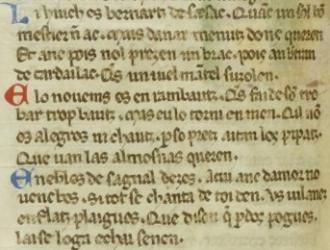 Li huech es bernartz de saisac. Quanc un sol bo
mestier n ac. Mas danar menutz dons queren.
Et anc pois nol prezen un brac. Pois an bern
de cardaillac. Qis un uiel mātel suzolen.
E lo nouems es en raimbautz. Qis fai de so tro
bar trop bautz. Mas eu lo torn en nien. Qil nō
es alegres ni chautz. p so pretz aitan los pipautz.
Que uan las almosnas queren.
E neblos de sagnal deres. Acui anc damor no
uenc bes. Si tot se chanta de coinden. Us uilanetz
enflatz plaigues. Que dizon q̄ p dos pogues.
lai se loga e chai se uen.